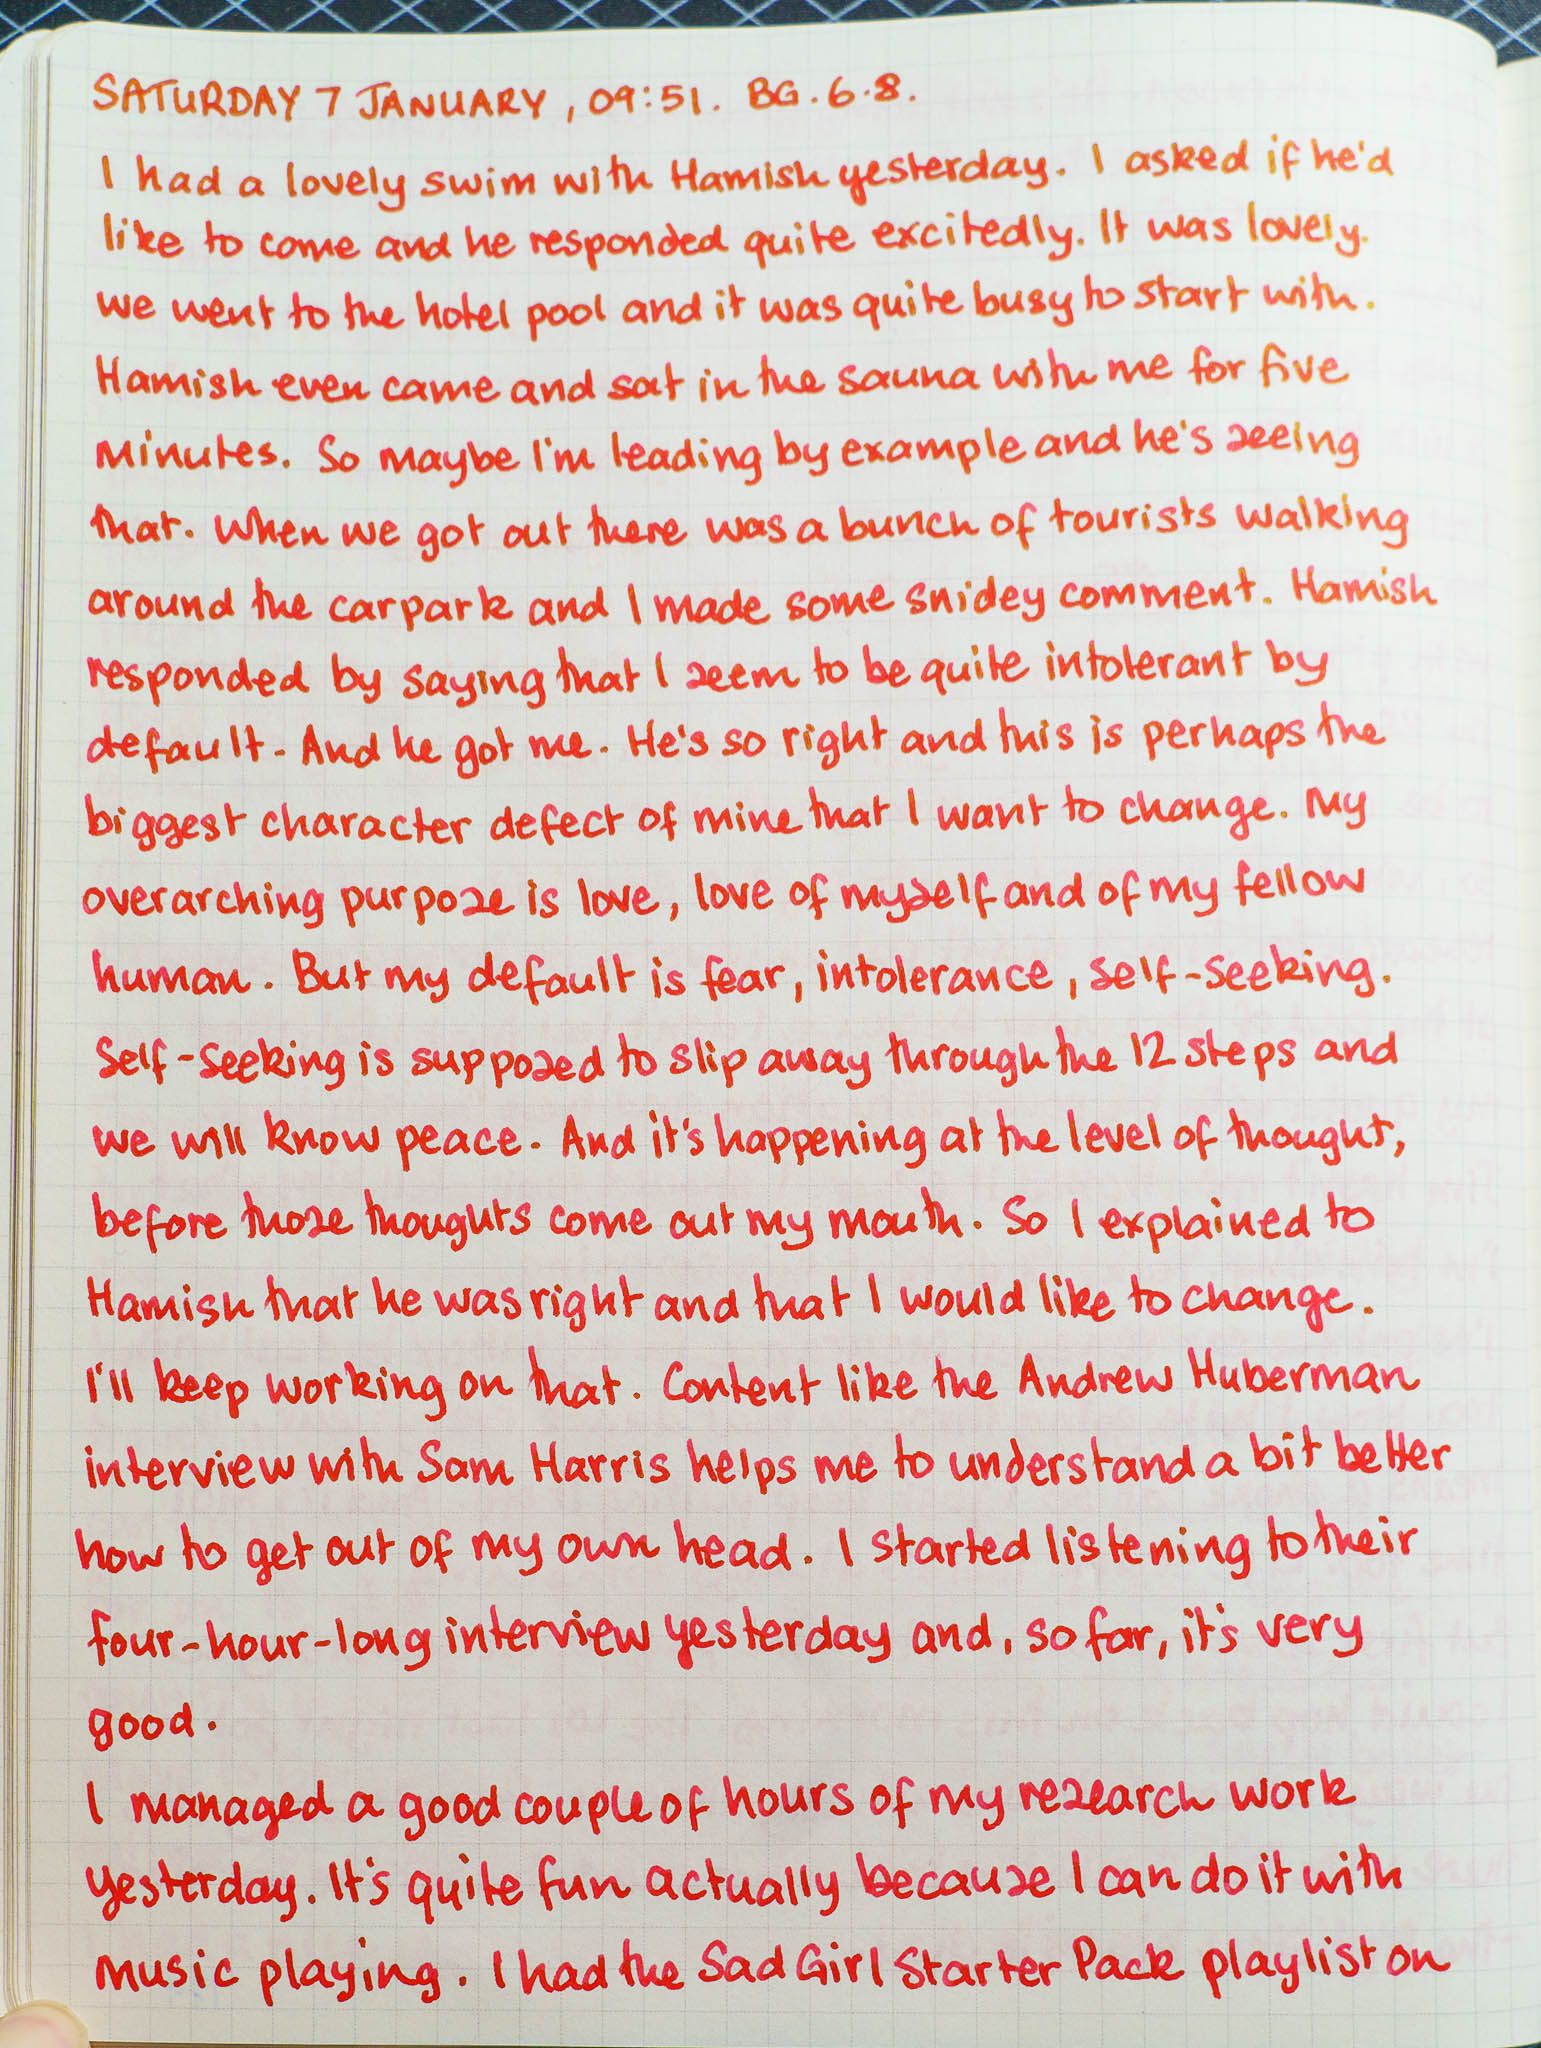 SATURDAY 7 JANUARY, 09:51. BG. 6.8.
I had a lovely swim with Hamish yesterday. I asked if he'd
like to come and he responded quite excitedly. It was lovely.
We went to the hotel pool and it was quite busy to start with.
Hamish even came and sat in the sauna with me for five
minutes. So maybe I'm leading by example and he's seeing
that. When we got out there was a bunch of tourists walking
around the carpark and I made some snidey comment. Hamish
responded by saying that I seem to be quite intolerant by
default. And he got me. He's so right and this is perhaps the
biggest character defect of mine that I want to change. My
overarching purpose is love, love of myself and of my fellow
human. But my default is fear, intolerance, self-seeking.
Self-seeking is supposed to slip away through the 12 steps and
we will know peace. And it's happening at the level of thought,
before those thoughts come out my mouth. So I explained to
Hamish that he was right and that I would like to change.
I'll keep working on that. Content like the Andrew Huberman
interview with Sam Harris helps me to understand a bit better
how to get out of my own head. I started listening to their
four-hour-long interview yesterday and, so far, it's very
good.
I managed a good couple of hours of my research work
yesterday. It's quite fun actually because I can do it with
music playing. I had the Sad Girl Starter Pack playlist on